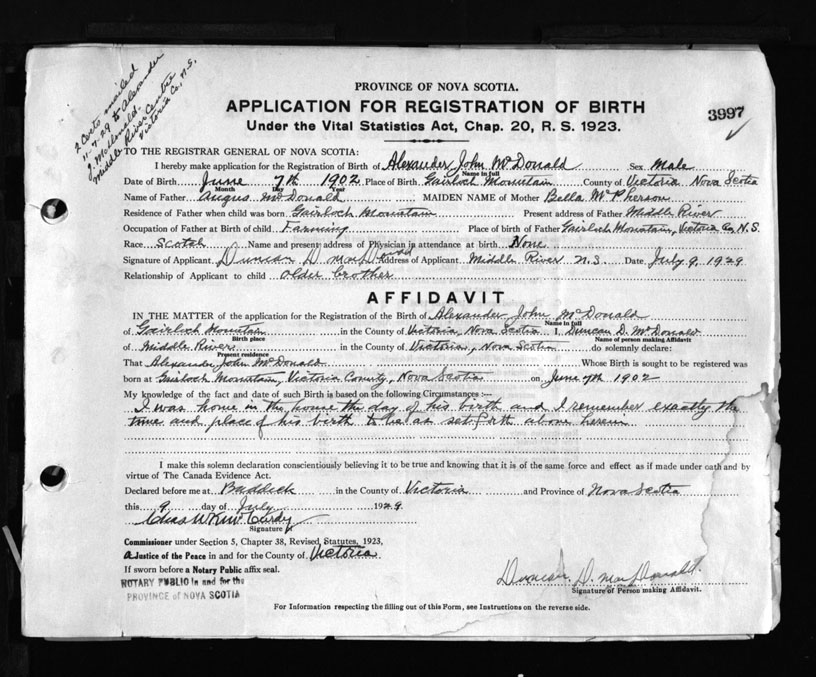 2 Certs mailed
11.7.29 to Alexander
J. McDonald.
Middle River Centre
Victoria Co, N.S.
PROVINCE OF NOVA SCOTIA.
APPLICATION FOR REGISTRATION OF BIRTH
3997
Under the Vital Statistics Act, Chap. 20, R. S. 1923.
TO THE REGISTRAR GENERAL OF NOVA SCOTIA:
I hereby make application for the Registration of Birth of Alexander John McDonald Sex Male
Name in full
Date of Birth June 7th 1902 Place of Birth Gairloch Mountain County of Victoria Nova Scotia
Month Day Year
Name of Father Angus McDonald MAIDEN NAME of Mother Bella McPherson
Residence of Father when child was born Gairloch Mountain Present address of Father Middle River
Occupation of Father at Birth of child Farming Place of birth of Father Gairloch Mountain, Victoria Co, N.S.
Race Scotch Name and present address of Physician in attendance at birth None
Signature of Applicant Duncan D MacDonald Address of Applicant Middle River N.S. Date July 9, 1929
Relationship of Applicant to child older brother
AFFIDAVIT
IN THE MATTER of the application for the Registration of the Birth of Alexander John McDonald
Name in full
of Gairloch Mountain in the County of Victoria, Nova Scotia I, Duncan D. McDonald
Birth place Name of person making Affidavit
of Middle River in the County of Victoria, Nova Scotia do solemnly declare:
Present residence
That Alexander John McDonald Whose Birth is sought to be registered was
born at Gairloch Mountain, Victoria County, Nova Scotia on June 7th 1902
My knowledge of the fact and date of such Birth is based on the following Circumstances :—
I was home in the house the day of his birth and I remember exactly the
time and place of his birth to be as set forth above herein
I make this solemn declaration conscientiously believing it to be true and knowing that it is of the same force and effect as if made under oath and by
virtue of The Canada Evidence Act.
Declared before me at Baddeck in the County of Victoria and Province of Nova Scotia
this 9 day of July 1929
Signature
Commissioner under Section 5, Chapter 38, Revised Statutes, 1923,
A Justice of the Peace in and for the County of Victoria
If sworn before a Notary Public affix seal.
NOTARY PUBLIC in and for the
PROVINCE of NOVA SCOTIA
Duncan. D. MacDonald.
Signature of Person making Affidavit.
For Information respecting the filling out of this Form, see Instructions on the reverse side.